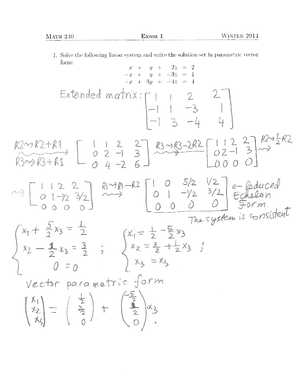 MATH 240 EXAM 1 WINTER 2014
1. Solve the following linear system and write the solution set in parametric vector
form:
x + y + 2z = 2
-x + y + -3z = 1
-x + 3y + -4z = 4
Extended matrix: [ 1 1 2 2
-1 1 -3 1
-1 3 -4 4 ]
R2⇝R2+R1
R3⇝R3+R1 [ 1 1 2 2
0 2 -1 3
0 4 -2 6 ] R3⇝R3-2R2 [ 1 1 2 2
0 2 -1 3
0 0 0 0 ] R2⇝½R2
⇝ [ 1 1 2 2
0 1 -1/2 3/2
0 0 0 0 ] R1⇝R1-R2 [ 1 0 5/2 1/2
0 1 -1/2 3/2
0 0 0 0 ] ← Reduced
Echelon
Form
The system is consistent
{ x₁ + 5/2 x₃ = 1/2
x₂ - 1/2 x₃ = 3/2 ;
0 = 0
{ x₁ = 1/2 - 5/2 x₃
x₂ = 3/2 + 1/2 x₃ ;
x₃ = x₃
Vector parametric form